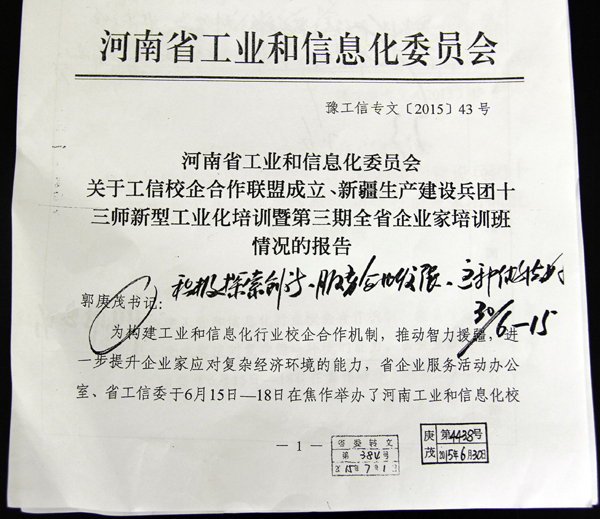 河南省工业和信息化委员会
豫工信专文〔2015〕43号
河南省工业和信息化委员会
关于工信校企合作联盟成立、新疆生产建设兵团十
三师新型工业化培训暨第三期全省企业家培训班
情况的报告
积极探索创新、服务
30/6-15
郭庚茂书记：
为构建工业和信息化行业校企合作机制，推动智力援疆，进
一步提升企业家应对复杂经济环境的能力，省企业服务活动办公
室、省工信委于6月15日—18日在焦作举办了河南工业和信息化校
— 1 —
省委转文
第384号
15年7月1
庚茂
第4438号
2015年6月30日